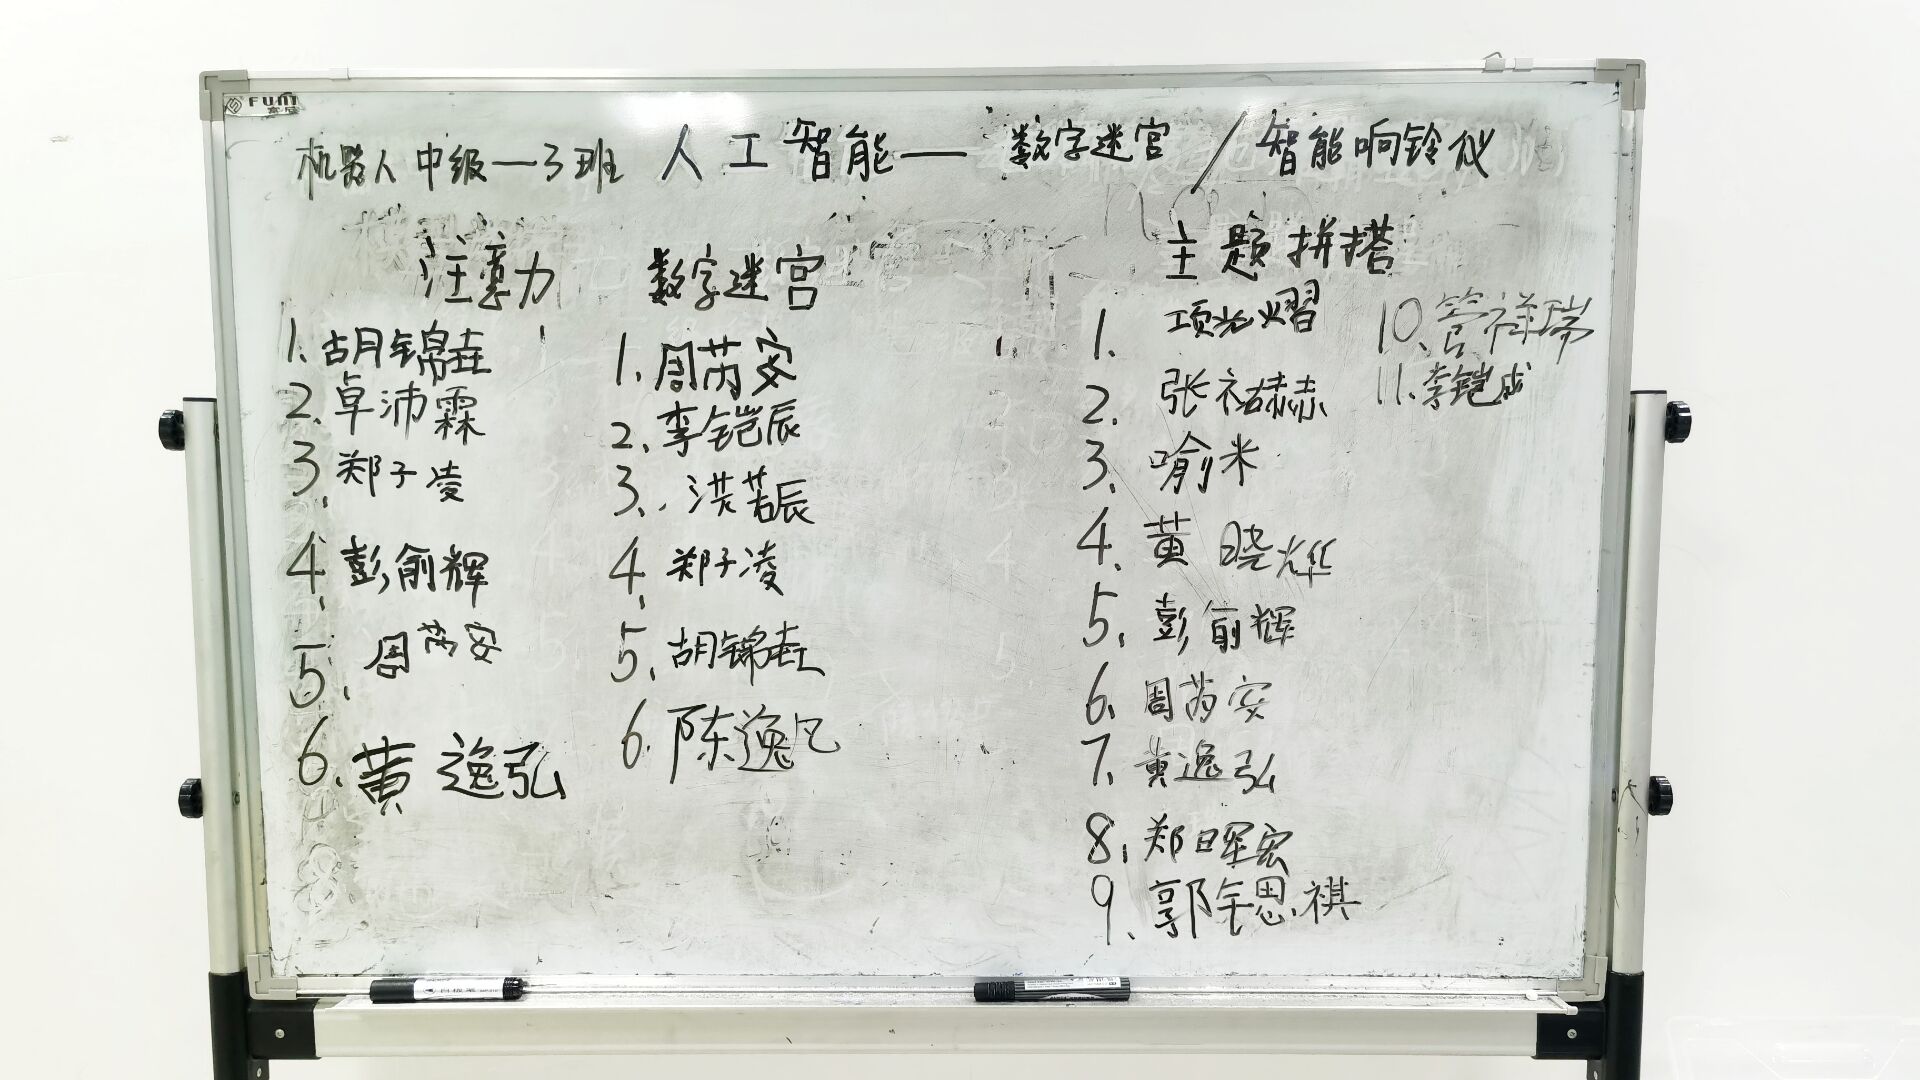 FUNI
机器人中级一3班 人工智能——数字迷宫/智能响铃仪
注意力
1.胡锦垚
2.卓沛霖
3.郑子凌
4.彭俞辉
5.周芮安
6.黄逸弘
数字迷宫
1.周芮安
2.李铠辰
3.洪若辰
4.郑子凌
5.胡锦垚
6.陈逸凡
主题拼搭
1.项光熠
2.张祐赫
3.喻米
4.黄晓烨
5.彭俞辉
6.周芮安
7.黄逸弘
8.郑晖宏
9.郭思祺
10.管祥瑞
11.李铠成
白板笔